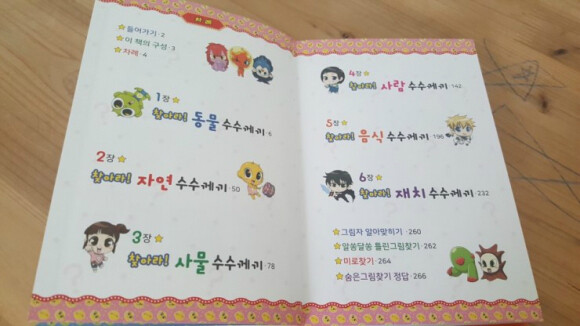 차 례
★들어가기·2
★이 책의 구성·3
★차례·4
1장★
찾아라! 동물 수수께끼·6
2장★
찾아라! 자연 수수께끼·50
3장★
찾아라! 사물 수수께끼·78
4장★
찾아라! 사람 수수께끼·142
5장★
찾아라! 음식 수수께끼·196
6장★
찾아라! 재치 수수께끼·232
★그림자 알아맞히기·260
★알쏭달쏭 틀린그림찾기·262
★미로찾기·264
★숨은그림찾기 정답·266